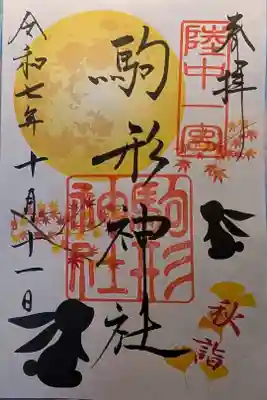 奉拝
陸中一宮
駒形神社
駒形
神社
令和七年十月十一日
秋詣